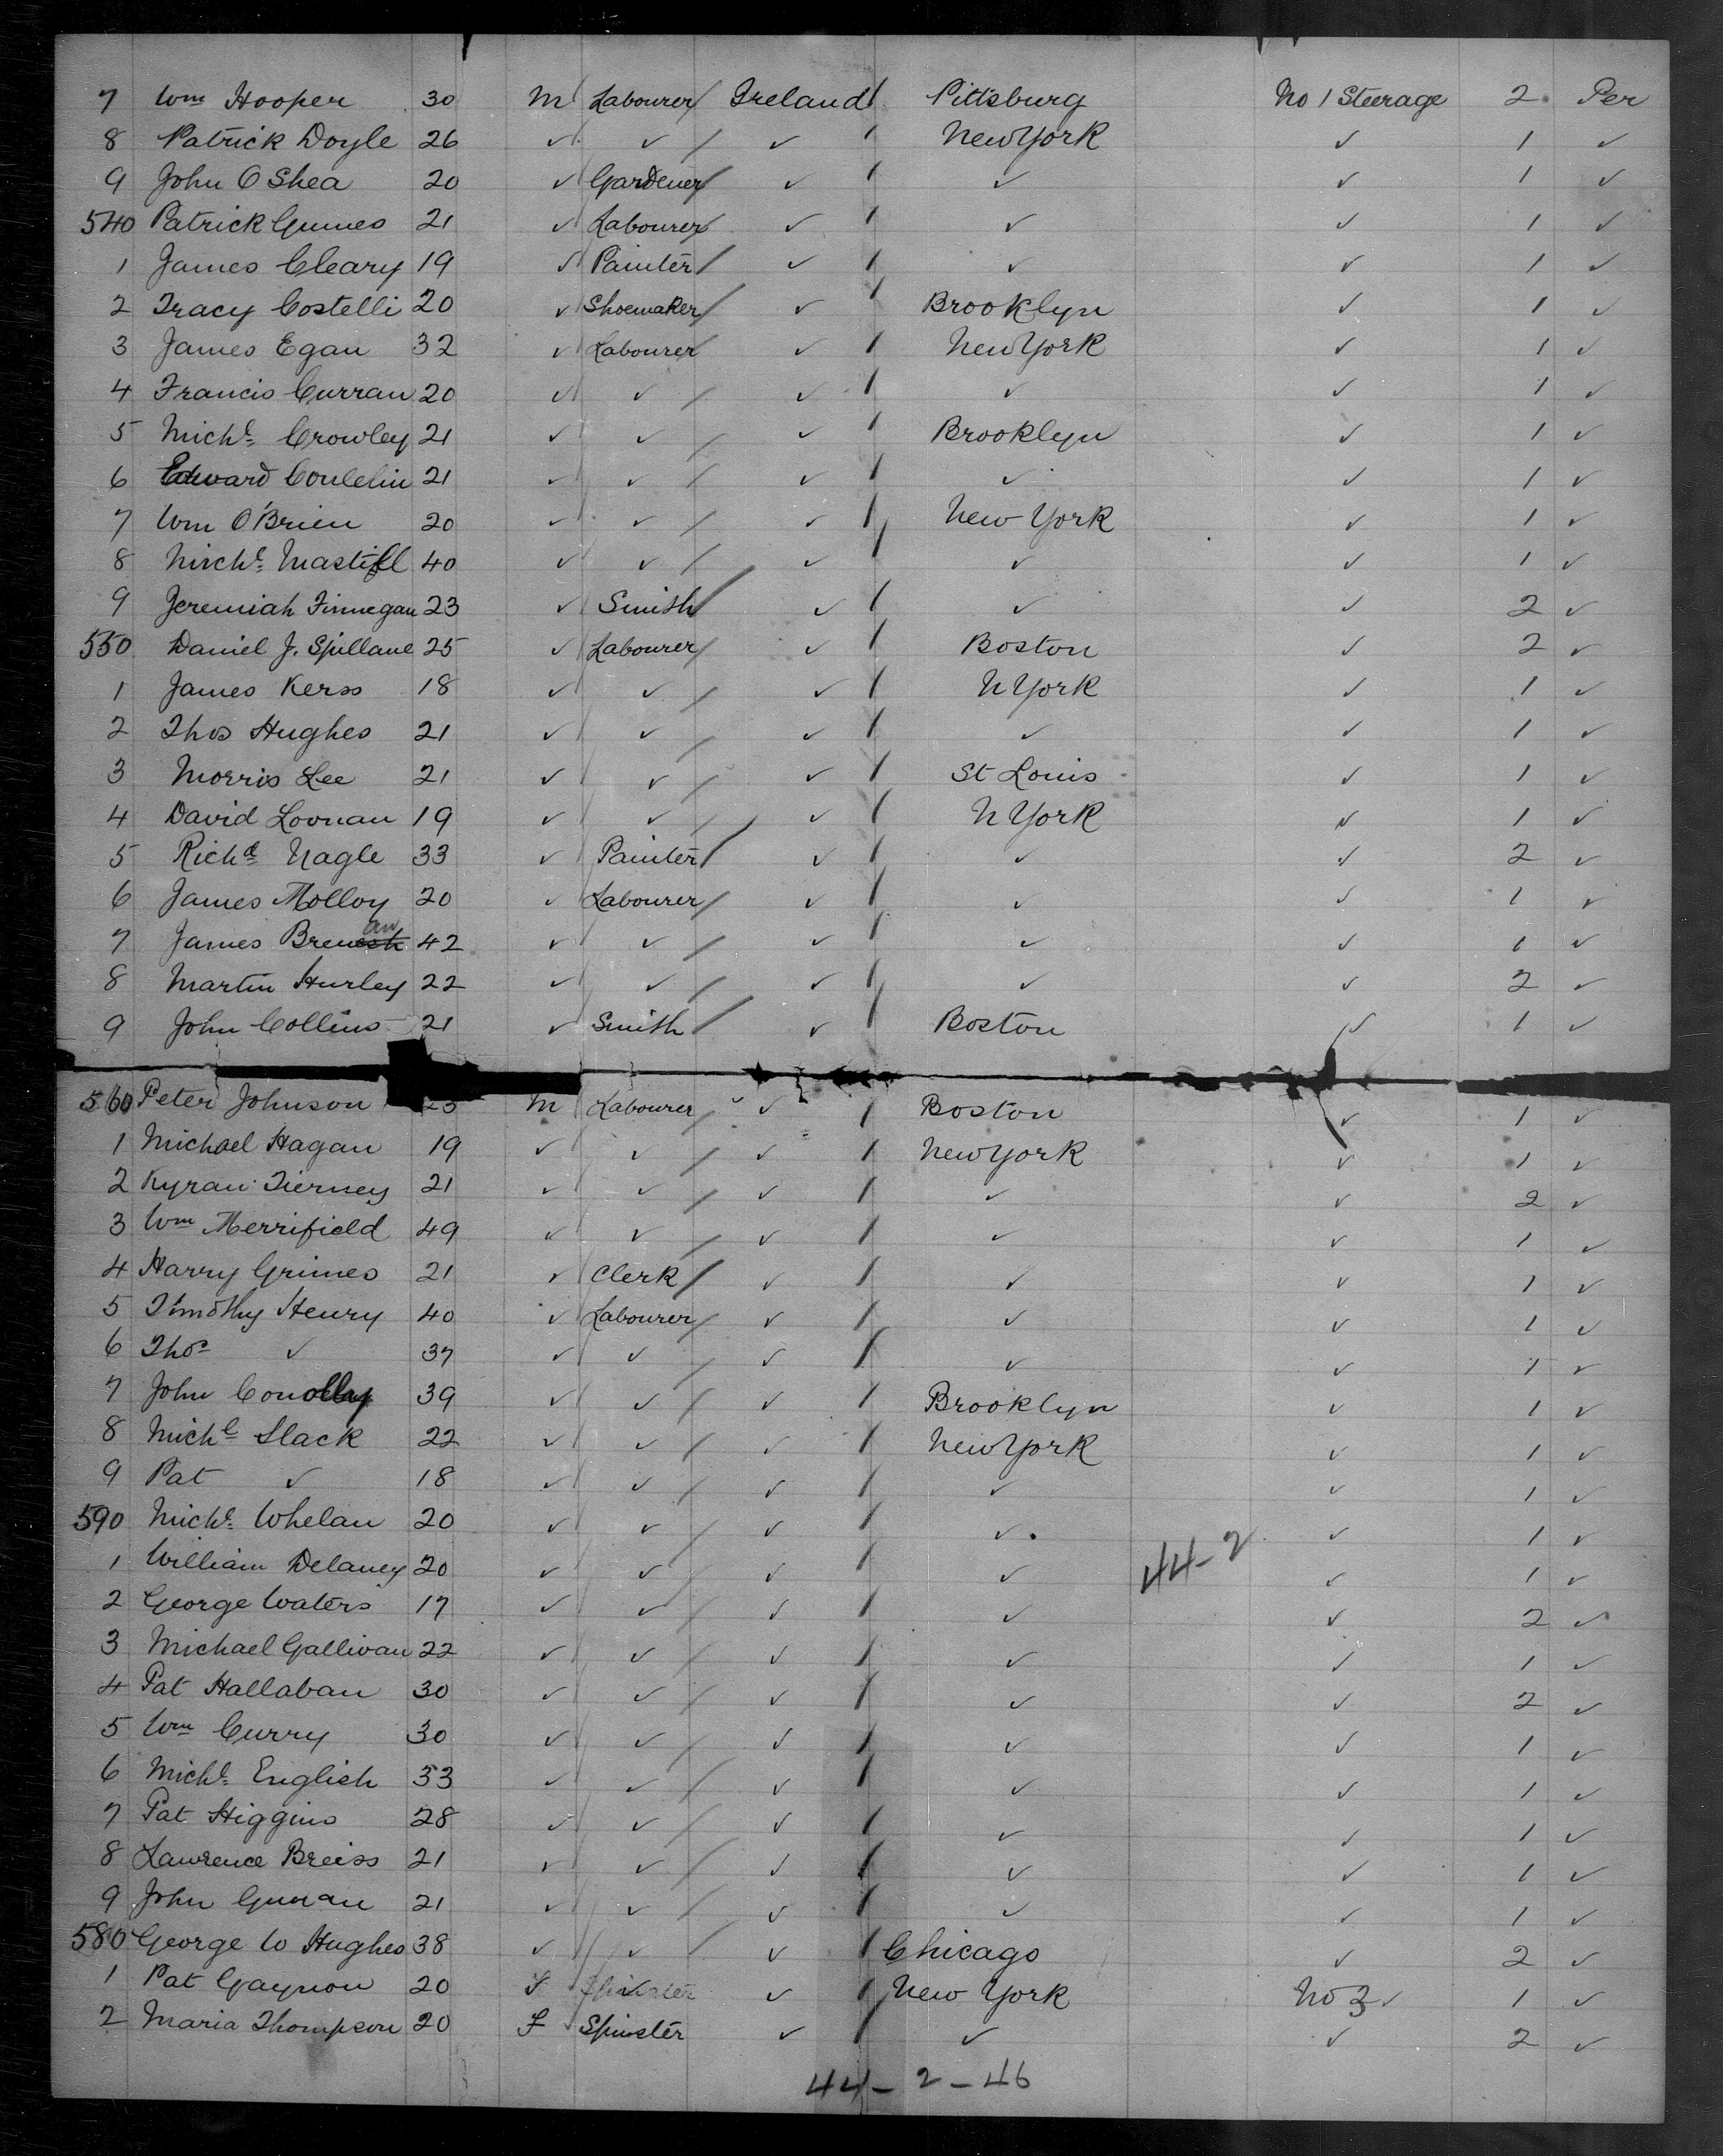 7 Wm Hooper 30 M Labourer / Ireland / Pittsburg No 1 Steerage 2 Per
8 Patrick Doyle 26 ✓ ✓ / ✓ / New York ✓ 1 ✓
9 John O Shea 20 ✓ Gardener / ✓ / ✓ ✓ 1 ✓
540 Patrick 21 ✓ Labourer / ✓ / ✓ ✓ 1 ✓
1 James Cleary 19 ✓ Painter / ✓ / ✓ ✓ 1 ✓
2 Tracy Costelli 20 ✓ Shoemaker / ✓ / Brooklyn ✓ 1 ✓
3 James Egan 32 ✓ Labourer / ✓ / New York ✓ 1 ✓
4 Francis Curran 20 ✓ ✓ / ✓ / ✓ ✓ 1 ✓
5 Michl Crowley 21 ✓ ✓ / ✓ / Brooklyn ✓ 1 ✓
6 Edward 21 ✓ ✓ / ✓ / ✓ ✓ 1 ✓
7 Wm O'Brien 20 ✓ ✓ / ✓ / New York ✓ 1 ✓
8 Michl 40 ✓ ✓ / ✓ / ✓ ✓ 1 ✓
9 Jeremiah Finnegan 23 ✓ Smith / ✓ / ✓ ✓ 2 ✓
550 Daniel J. Spillane 25 ✓ Labourer / ✓ / Boston ✓ 2 ✓
1 James Kerss 18 ✓ ✓ / ✓ / N York ✓ 1 ✓
2 Thos Hughes 21 ✓ ✓ / ✓ / ✓ ✓ 1 ✓
3 Morris Lee 21 ✓ ✓ / ✓ / St Louis ✓ 1 ✓
4 David Loonan 19 ✓ ✓ / ✓ / N York ✓ 1 ✓
5 Richd Nagle 33 ✓ Painter / ✓ / ✓ ✓ 2 ✓
6 James Molloy 20 ✓ Labourer / ✓ / ✓ ✓ 1 ✓
7 James Brenan 42 ✓ ✓ / ✓ / ✓ ✓ 1 ✓
8 Martin Hurley 22 ✓ ✓ / ✓ / ✓ ✓ 2 ✓
9 John Collins 21 ✓ Smith / ✓ / Boston ✓ 1 ✓
560 Peter Johnson M Labourer / ✓ / Boston ✓ 1 ✓
1 Michael Hagan 19 ✓ ✓ / ✓ / New York ✓ 1 ✓
2 Kyran Tierney 21 ✓ ✓ / ✓ ✓ ✓ 2 ✓
3 Wm Merrifield 49 ✓ ✓ / ✓ / ✓ ✓ 1 ✓
4 Harry Grimes 21 ✓ Clerk / ✓ / ✓ ✓ 1 ✓
5 Timothy Henry 40 ✓ Labourer / ✓ / ✓ ✓ 1 ✓
6 Thos ✓ 37 ✓ ✓ / ✓ / ✓ ✓ 1 ✓
7 John Conolly 39 ✓ ✓ / ✓ / Brooklyn ✓ 1 ✓
8 Michl Slack 22 ✓ ✓ / ✓ / New York ✓ 1 ✓
9 Pat ✓ 18 ✓ ✓ / ✓ / ✓ ✓ 1 ✓
590 Michl Whelan 20 ✓ ✓ / ✓ / ✓ ✓ 1 ✓
1 William Delaney 20 ✓ ✓ / ✓ / ✓ 44-2 ✓ 1 ✓
2 George Waters 17 ✓ ✓ / ✓ / ✓ ✓ 2 ✓
3 Michael Gallivan 22 ✓ ✓ / ✓ / ✓ ✓ 1 ✓
4 Pat Hallaban 30 ✓ ✓ / ✓ / ✓ ✓ 2 ✓
5 Wm Curry 30 ✓ ✓ / ✓ / ✓ ✓ 1 ✓
6 Michl English 33 ✓ ✓ / ✓ / ✓ ✓ 1 ✓
7 Pat Higgins 28 ✓ ✓ / ✓ / ✓ ✓ 1 ✓
8 Lawrence Breiss 21 ✓ ✓ / ✓ / ✓ ✓ 1 ✓
9 John 21 ✓ ✓ / ✓ / ✓ ✓ 1 ✓
580 George W Hughes 38 ✓ ✓ / ✓ / Chicago ✓ 2 ✓
1 Pat Gaynon 20 F Spinster ✓ / New York No 3 ✓ 1 ✓
2 Maria Thompson 20 F Spinster ✓ / ✓ ✓ 2 ✓
44 - 2 - 46